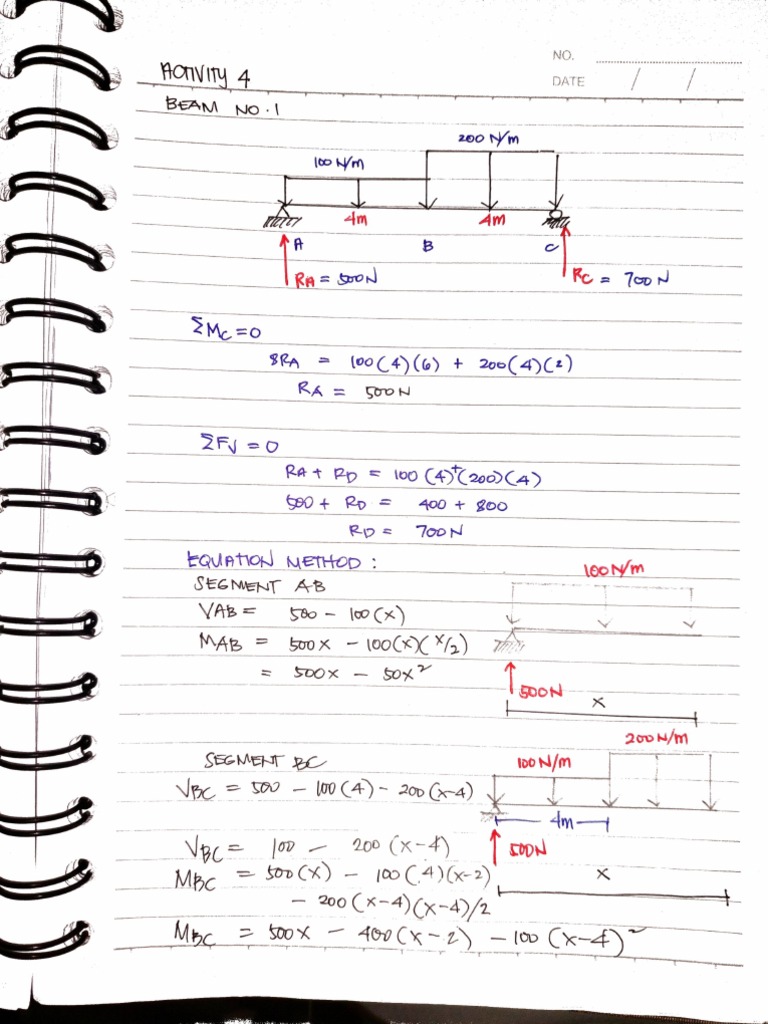 NO.
DATE / /
ACTIVITY 4
BEAM NO. 1
200 N/m
100 N/m
4m 4m
A B C
RA = 500N RC = 700N
ΣMC = 0
8RA = 100(4)(6) + 200(4)(2)
RA = 500N
ΣFV = 0
RA + RD = 100(4)+(200)(4)
500 + RD = 400 + 800
RD = 700N
EQUATION METHOD:
100 N/m
SEGMENT AB
VAB = 500 - 100(x)
MAB = 500x - 100(x)(x/2)
= 500x - 50x²
500N
x
200 N/m
SEGMENT BC
100 N/m
VBC = 500 - 100(4) - 200(x-4)
4m
VBC = 100 - 200(x-4)
500N
MBC = 500(x) - 100(4)(x-2)
x
- 200(x-4)(x-4)/2
MBC = 500x - 400(x-2) - 100(x-4)²